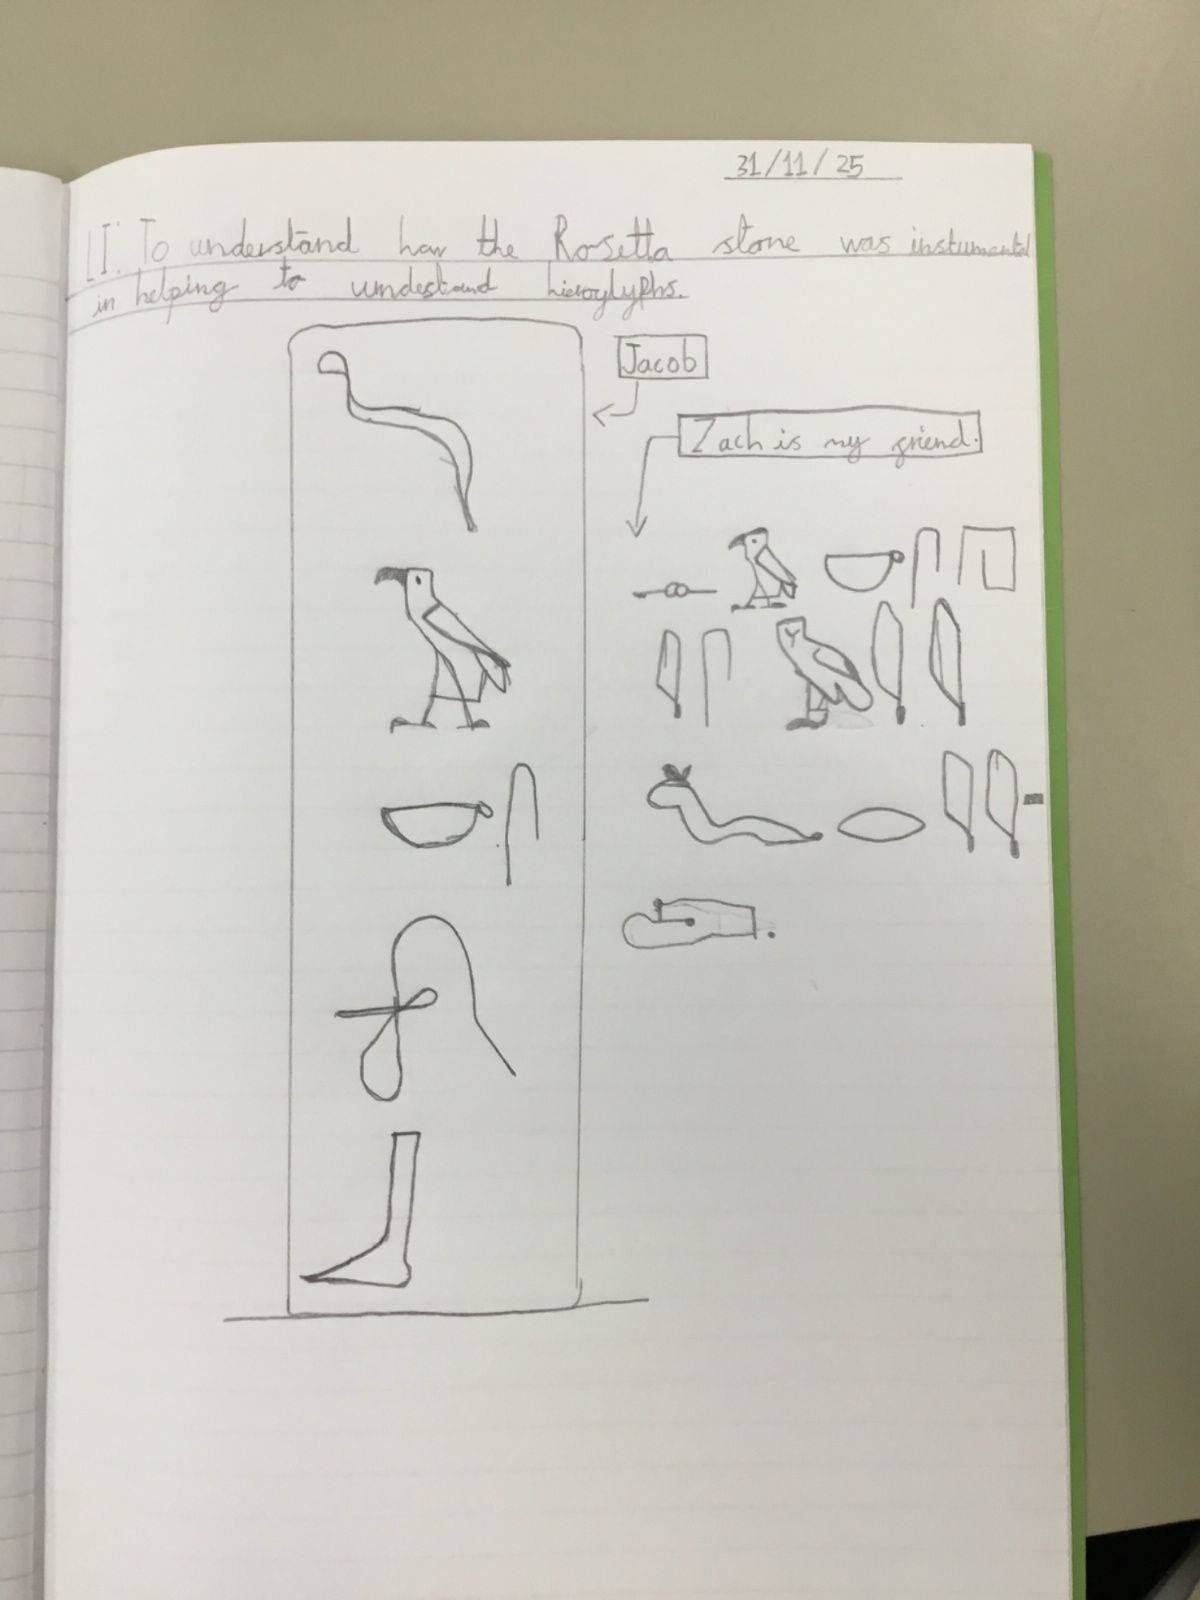 31/11/25
LI: To understand how the Rosetta stone was instumental
in helping to undestand hieroglyphs.
Jacob
Zach is my friend.